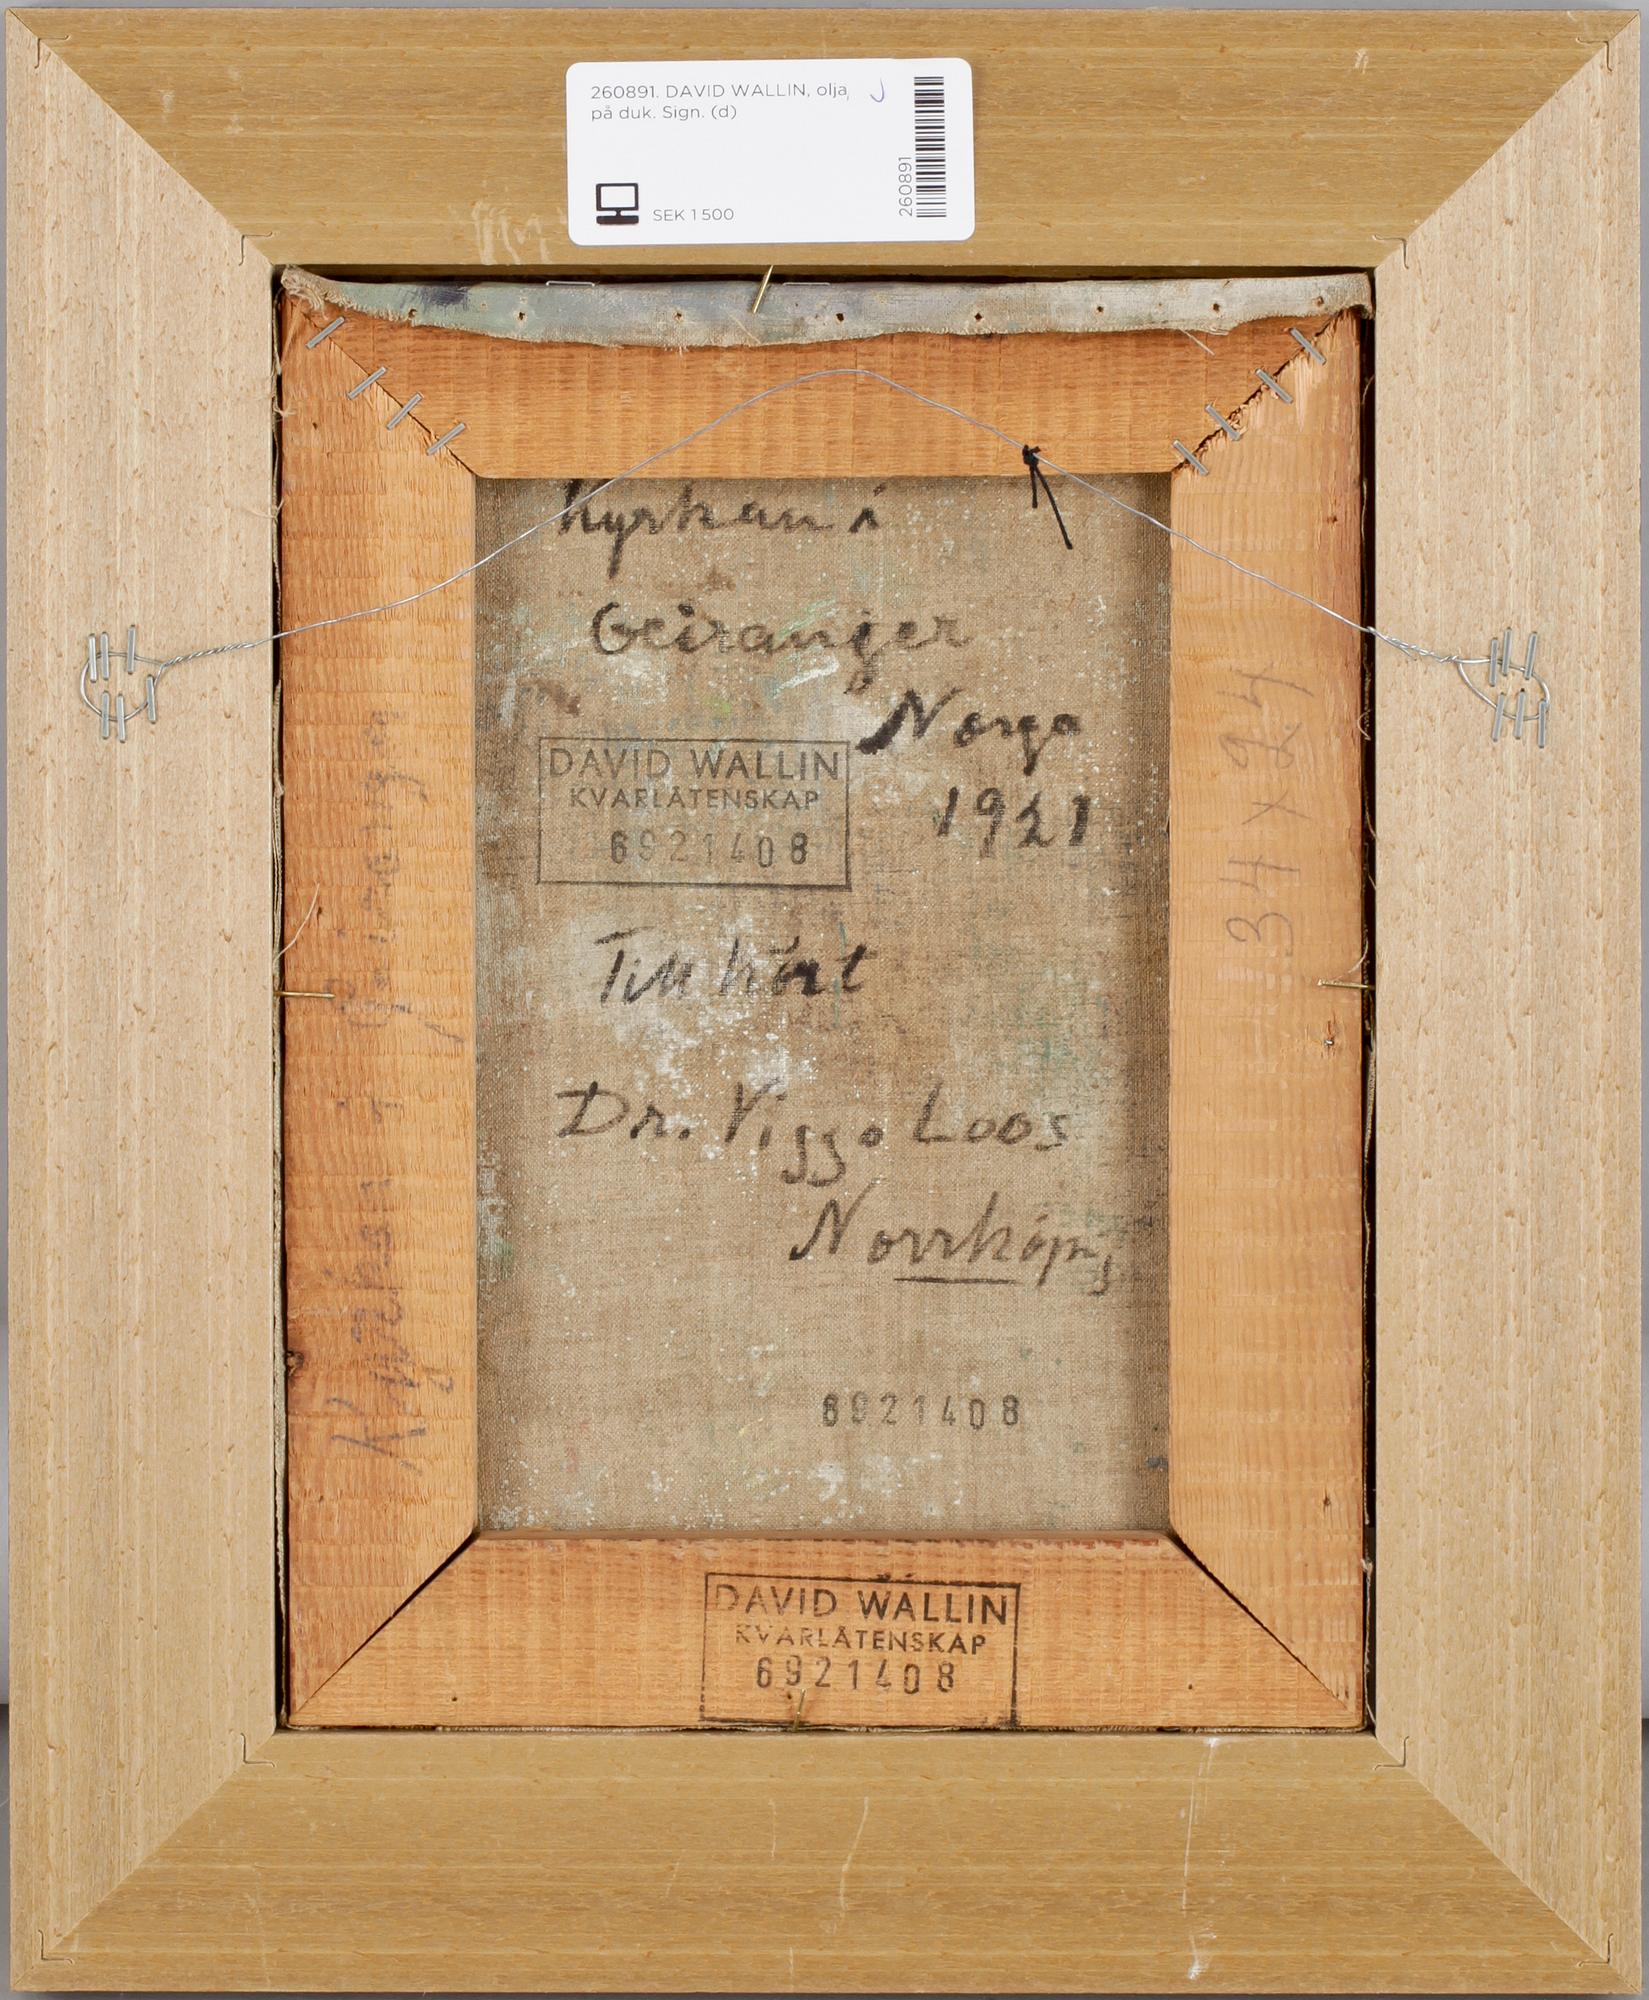 260891. DAVID WALLIN, olja,
på duk. Sign. (d)
SEK 1 500
260891
Kyrkan i
Geiranger
Norge
1921
DAVID WALLIN
KVARLÅTENSKAP
6921408
Tillhört
Dr. Viggo Loos
Norrköping
6921408
DAVID WALLIN
KVARLÅTENSKAP
6921408
Kyrkan i Geiranger
34 x 24